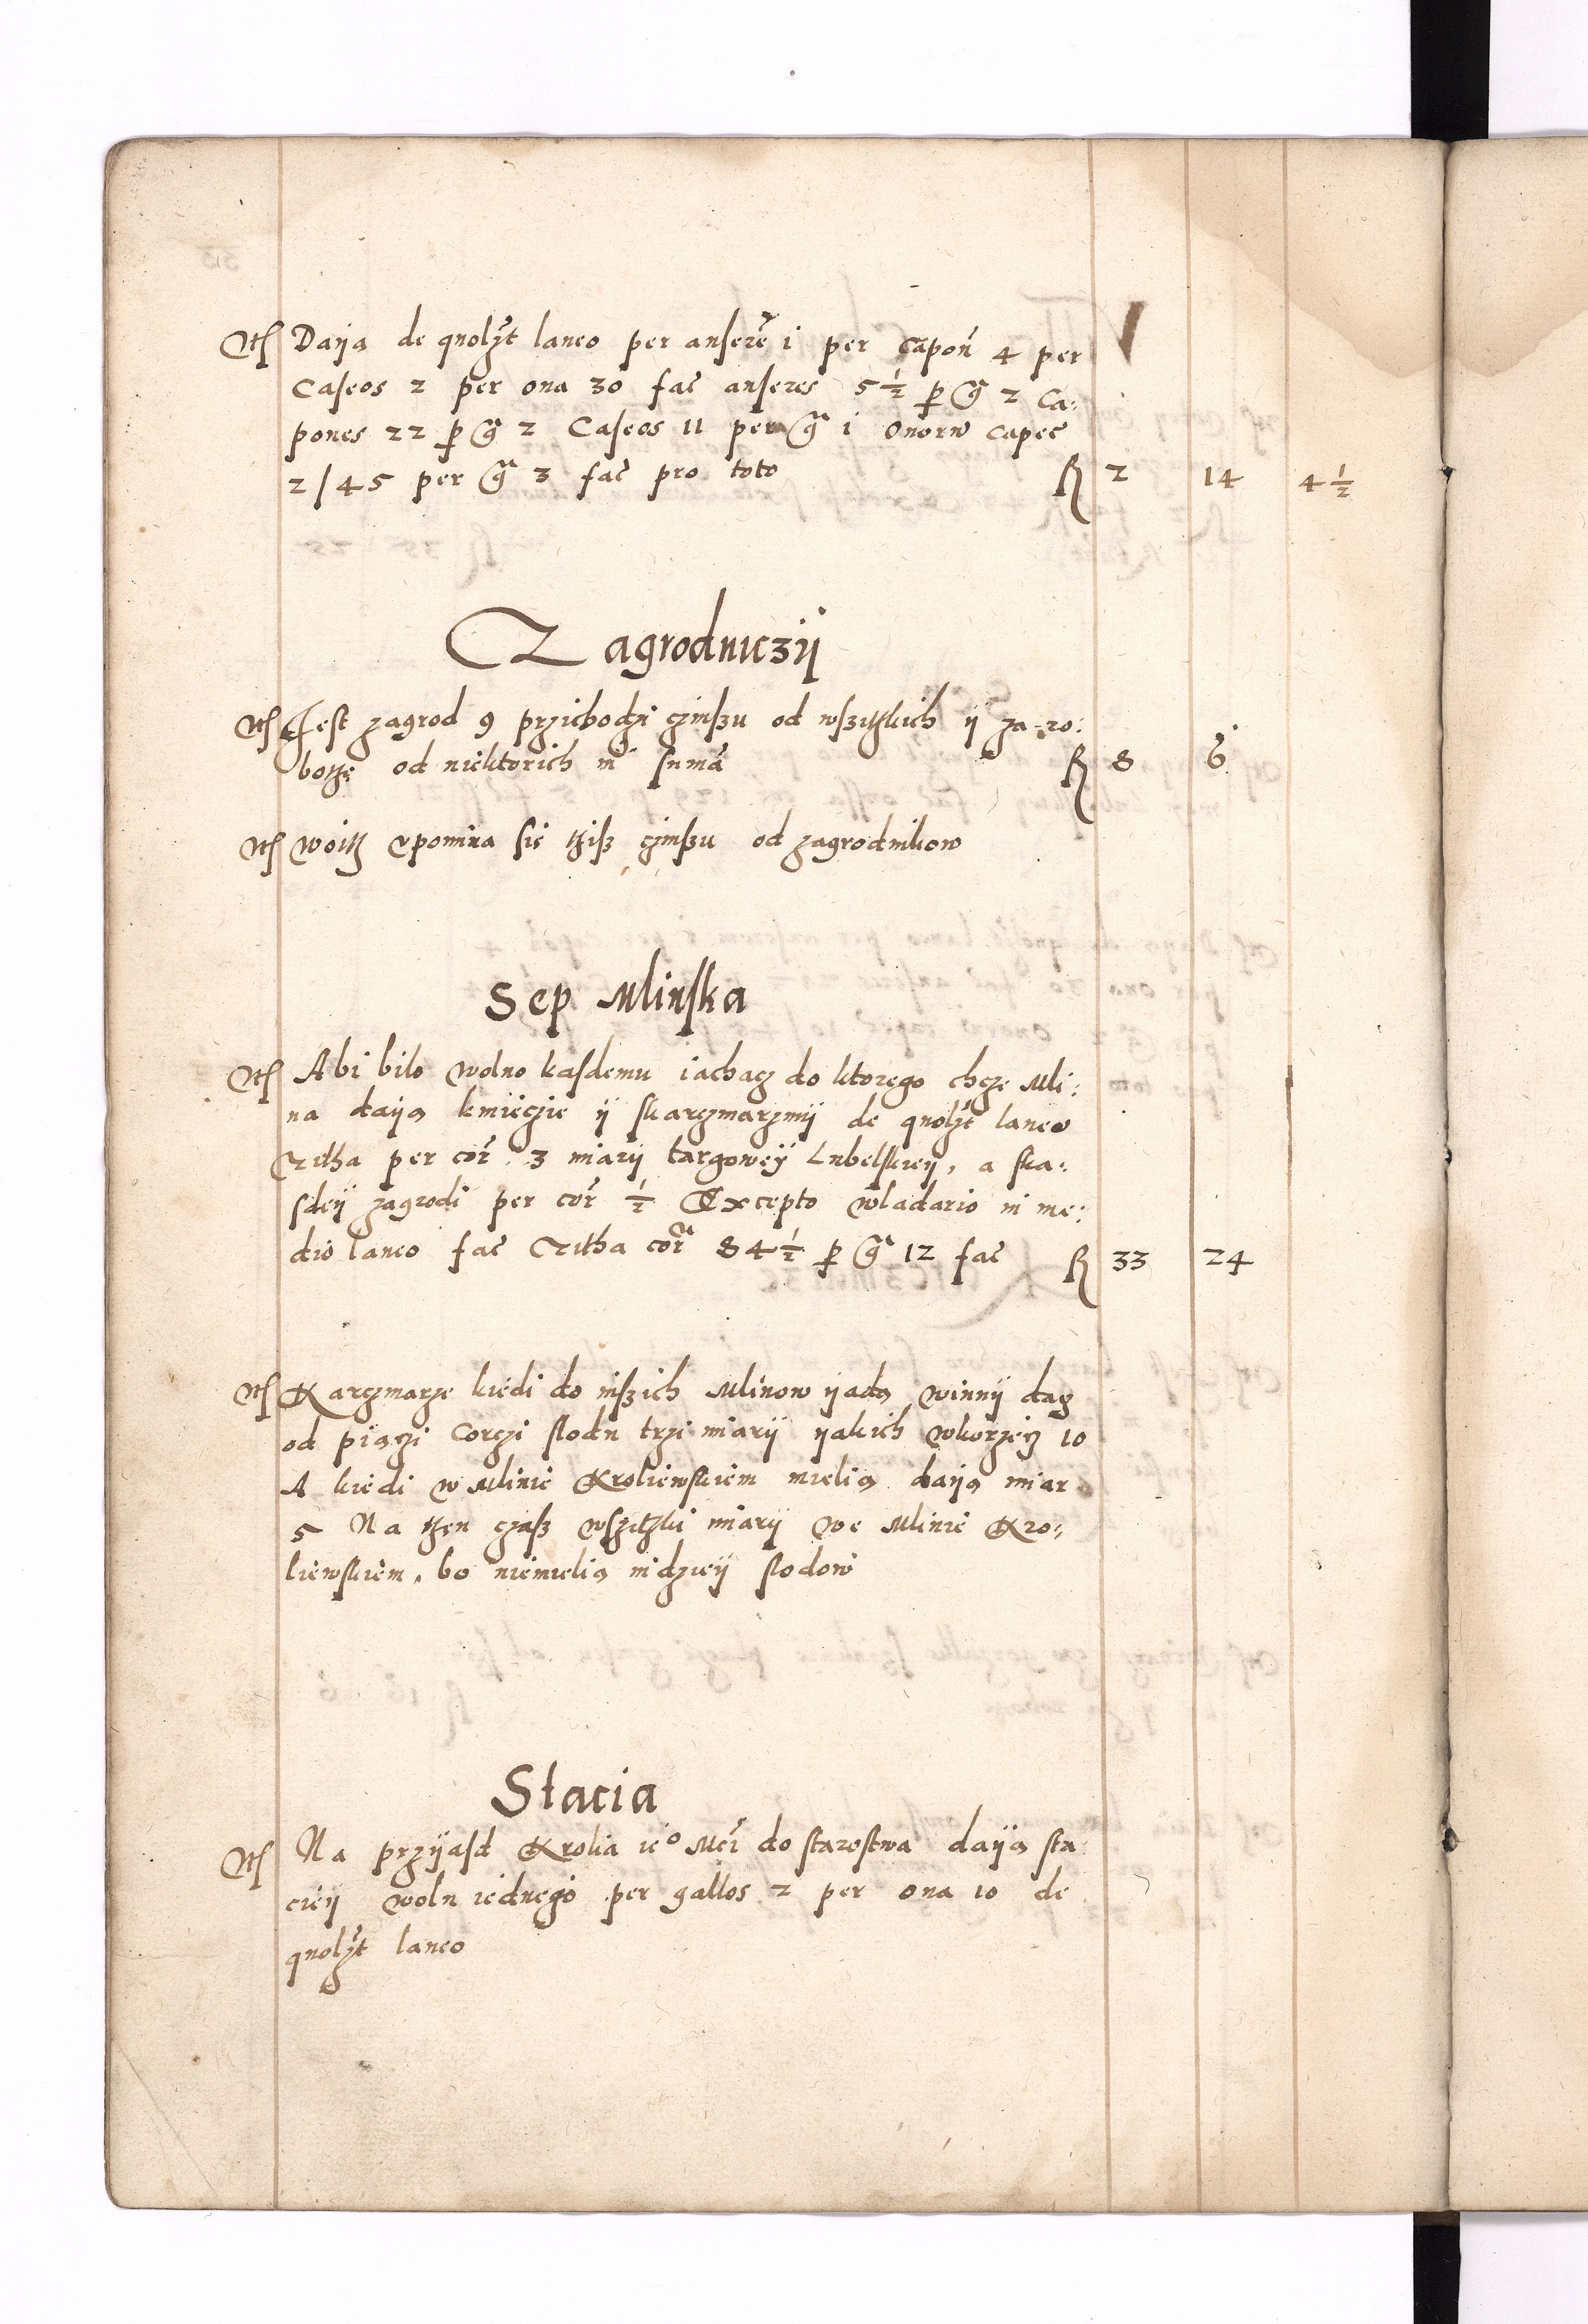 Itm Daija de quolȝt laneo per anserē i per capon̄ 4 per
Caseos 2 per oua 30 fac̄ anseres 5½ p g̃ 2 Ca:
pones 22 p g̃ 2 Caseos 11 per g̃ i Ouoru capec̄
2/45 per g̃ 3 fac̄ pro toto R 2 14 4½
Zagrodniczij
Itm Jest zagrod 9 przichodzi czinszu od wszitkich ij za ro:
botę od niektorich in suma R 8 6
Itm woith vpomina sie thisz czinszu od zagrodnikow
Sep Mlinska
Itm Abi bilo wolno kasdemu iachacz do ktorego chcze Mli:
na daija kmieczie ij skarczmarzmij de quolȝt laneo
Zitha per cor̄ 3 miarij targoweij Lubelskieij, a ska:
sdeij zagrodi per cor̄ ½ Excepto wladario in me:
dio laneo fac̄ Zitha cor̃ 84½ p g̃ 12 fac̄ R 33 24
Itm Karczmarze kiedi do inszich Mlinow ijada winnij dacz
od piączi Corczi slodu trzi miarij ijakich wkorzecz 10
A kiedi w Mlinie Kroliewskiem mielia daija miar
5 Na then czasz wszithki miarij we Mlinie Kro:
liewskiem, bo niemielia indzieij slodow
Stacia
Itm Na przijasd Krolia ie° Mci do starostwa daija sta
cieij wolu iednego per gallos 2 per oua 10 de
quolȝt laneo